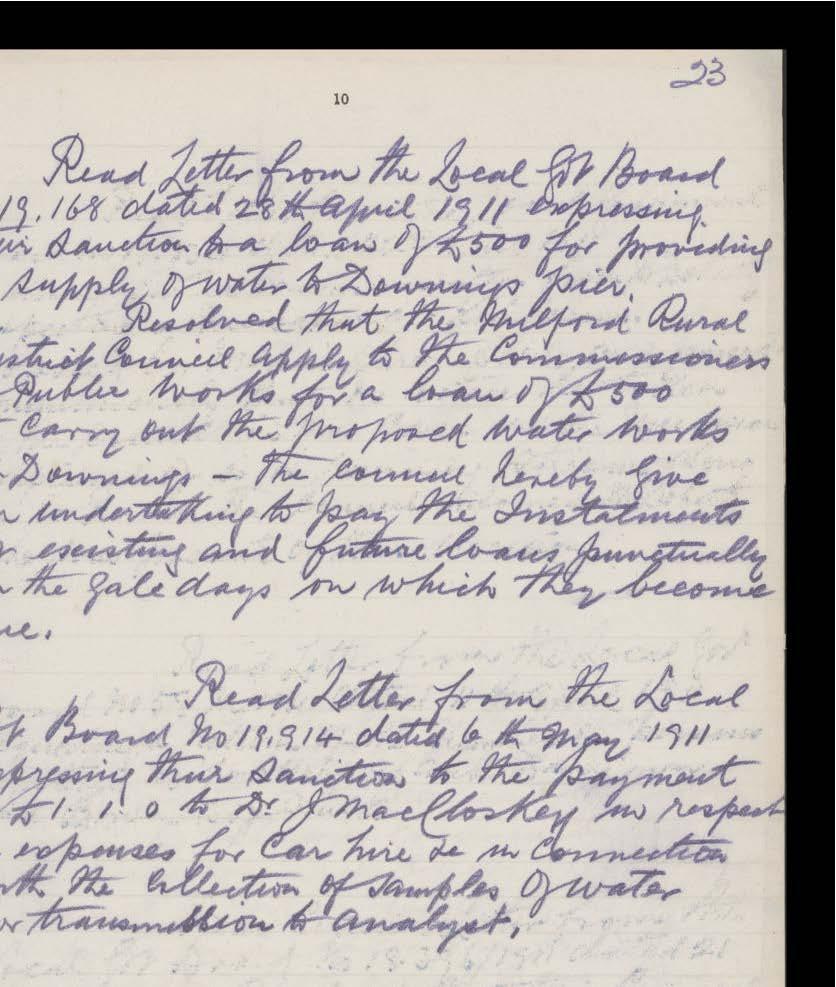 23
10
Read Letter from the Local Gvt Board
19.168 dated 28th April 1911 expressing
eir Sanction to a loan of £500 for providing
supply of water to Downings pier.
Resolved that the Milford Rural
istrict Council apply to the Commissioners
Public Works for a loan of £500
carry out the proposed water works
Downings – The council hereby give
n undertaking to pay the Instalments
existing and future loans punctually
n the gale days on which they become
ue.
Read Letter from the Local
vt Board No 19,914 dated 6th May 1911
xpressing their Sanction to the payment
£1.1.0 to Dr J MacCloskey in respect
expenses for Car hire &c in Connection
ith the Collection of Samples of water
or transmission to analyst.